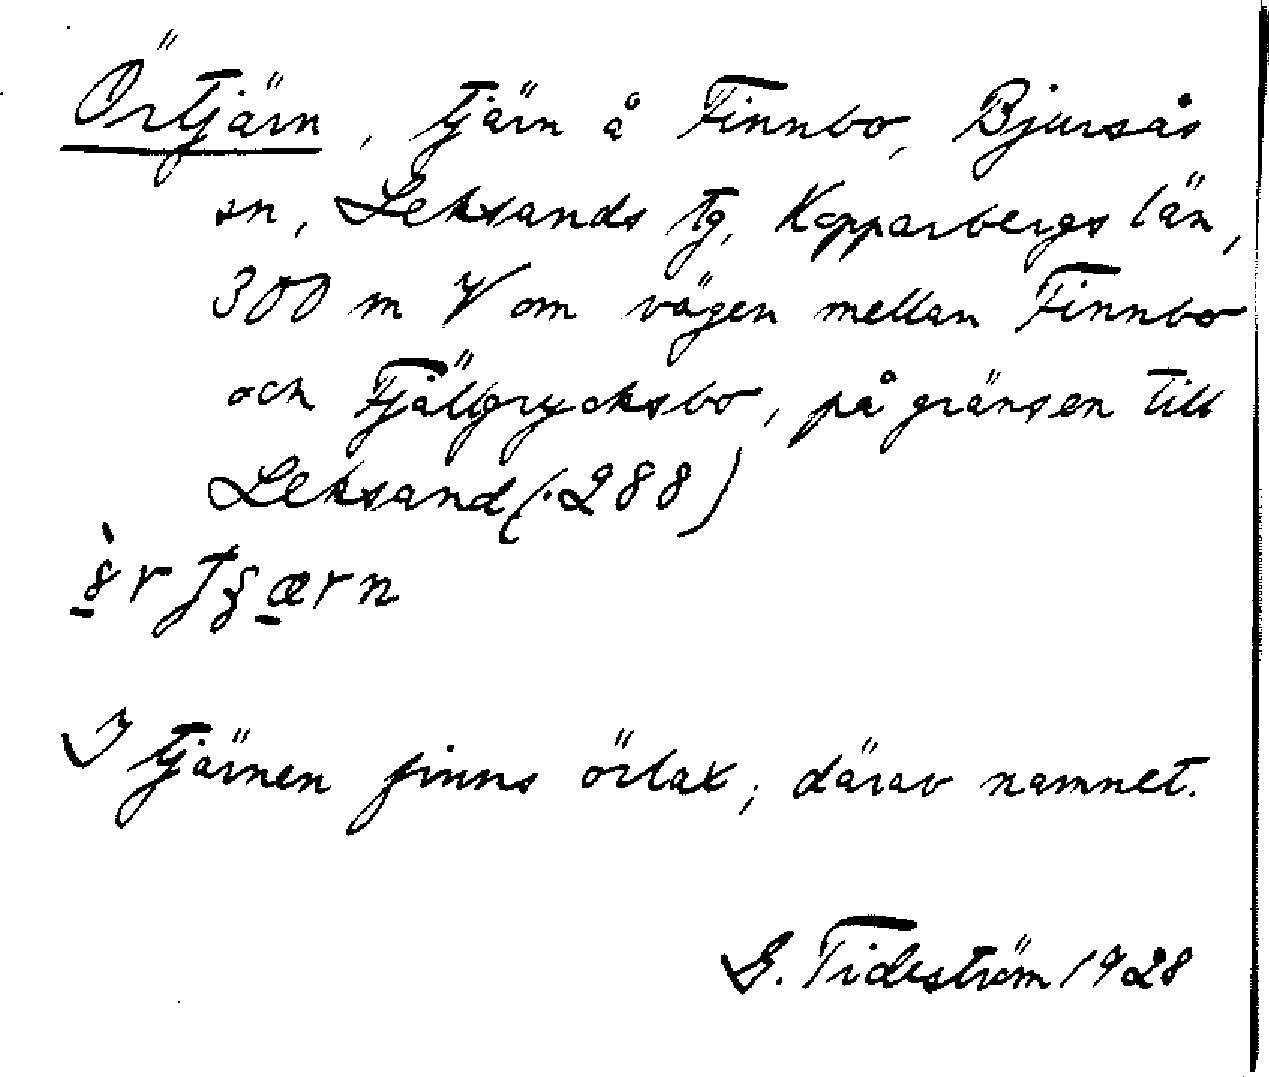 Örtjärn, tjärn å Finnbo, Bjursås
sn, Leksands tg, Kopparbergs län,
300 m V om vägen mellan Finnbo
och Fjällgrycksbo, på gränsen till
Leksand (.288)
I tjärnen finns örlax; därav namnet.
G. Tideström 1928